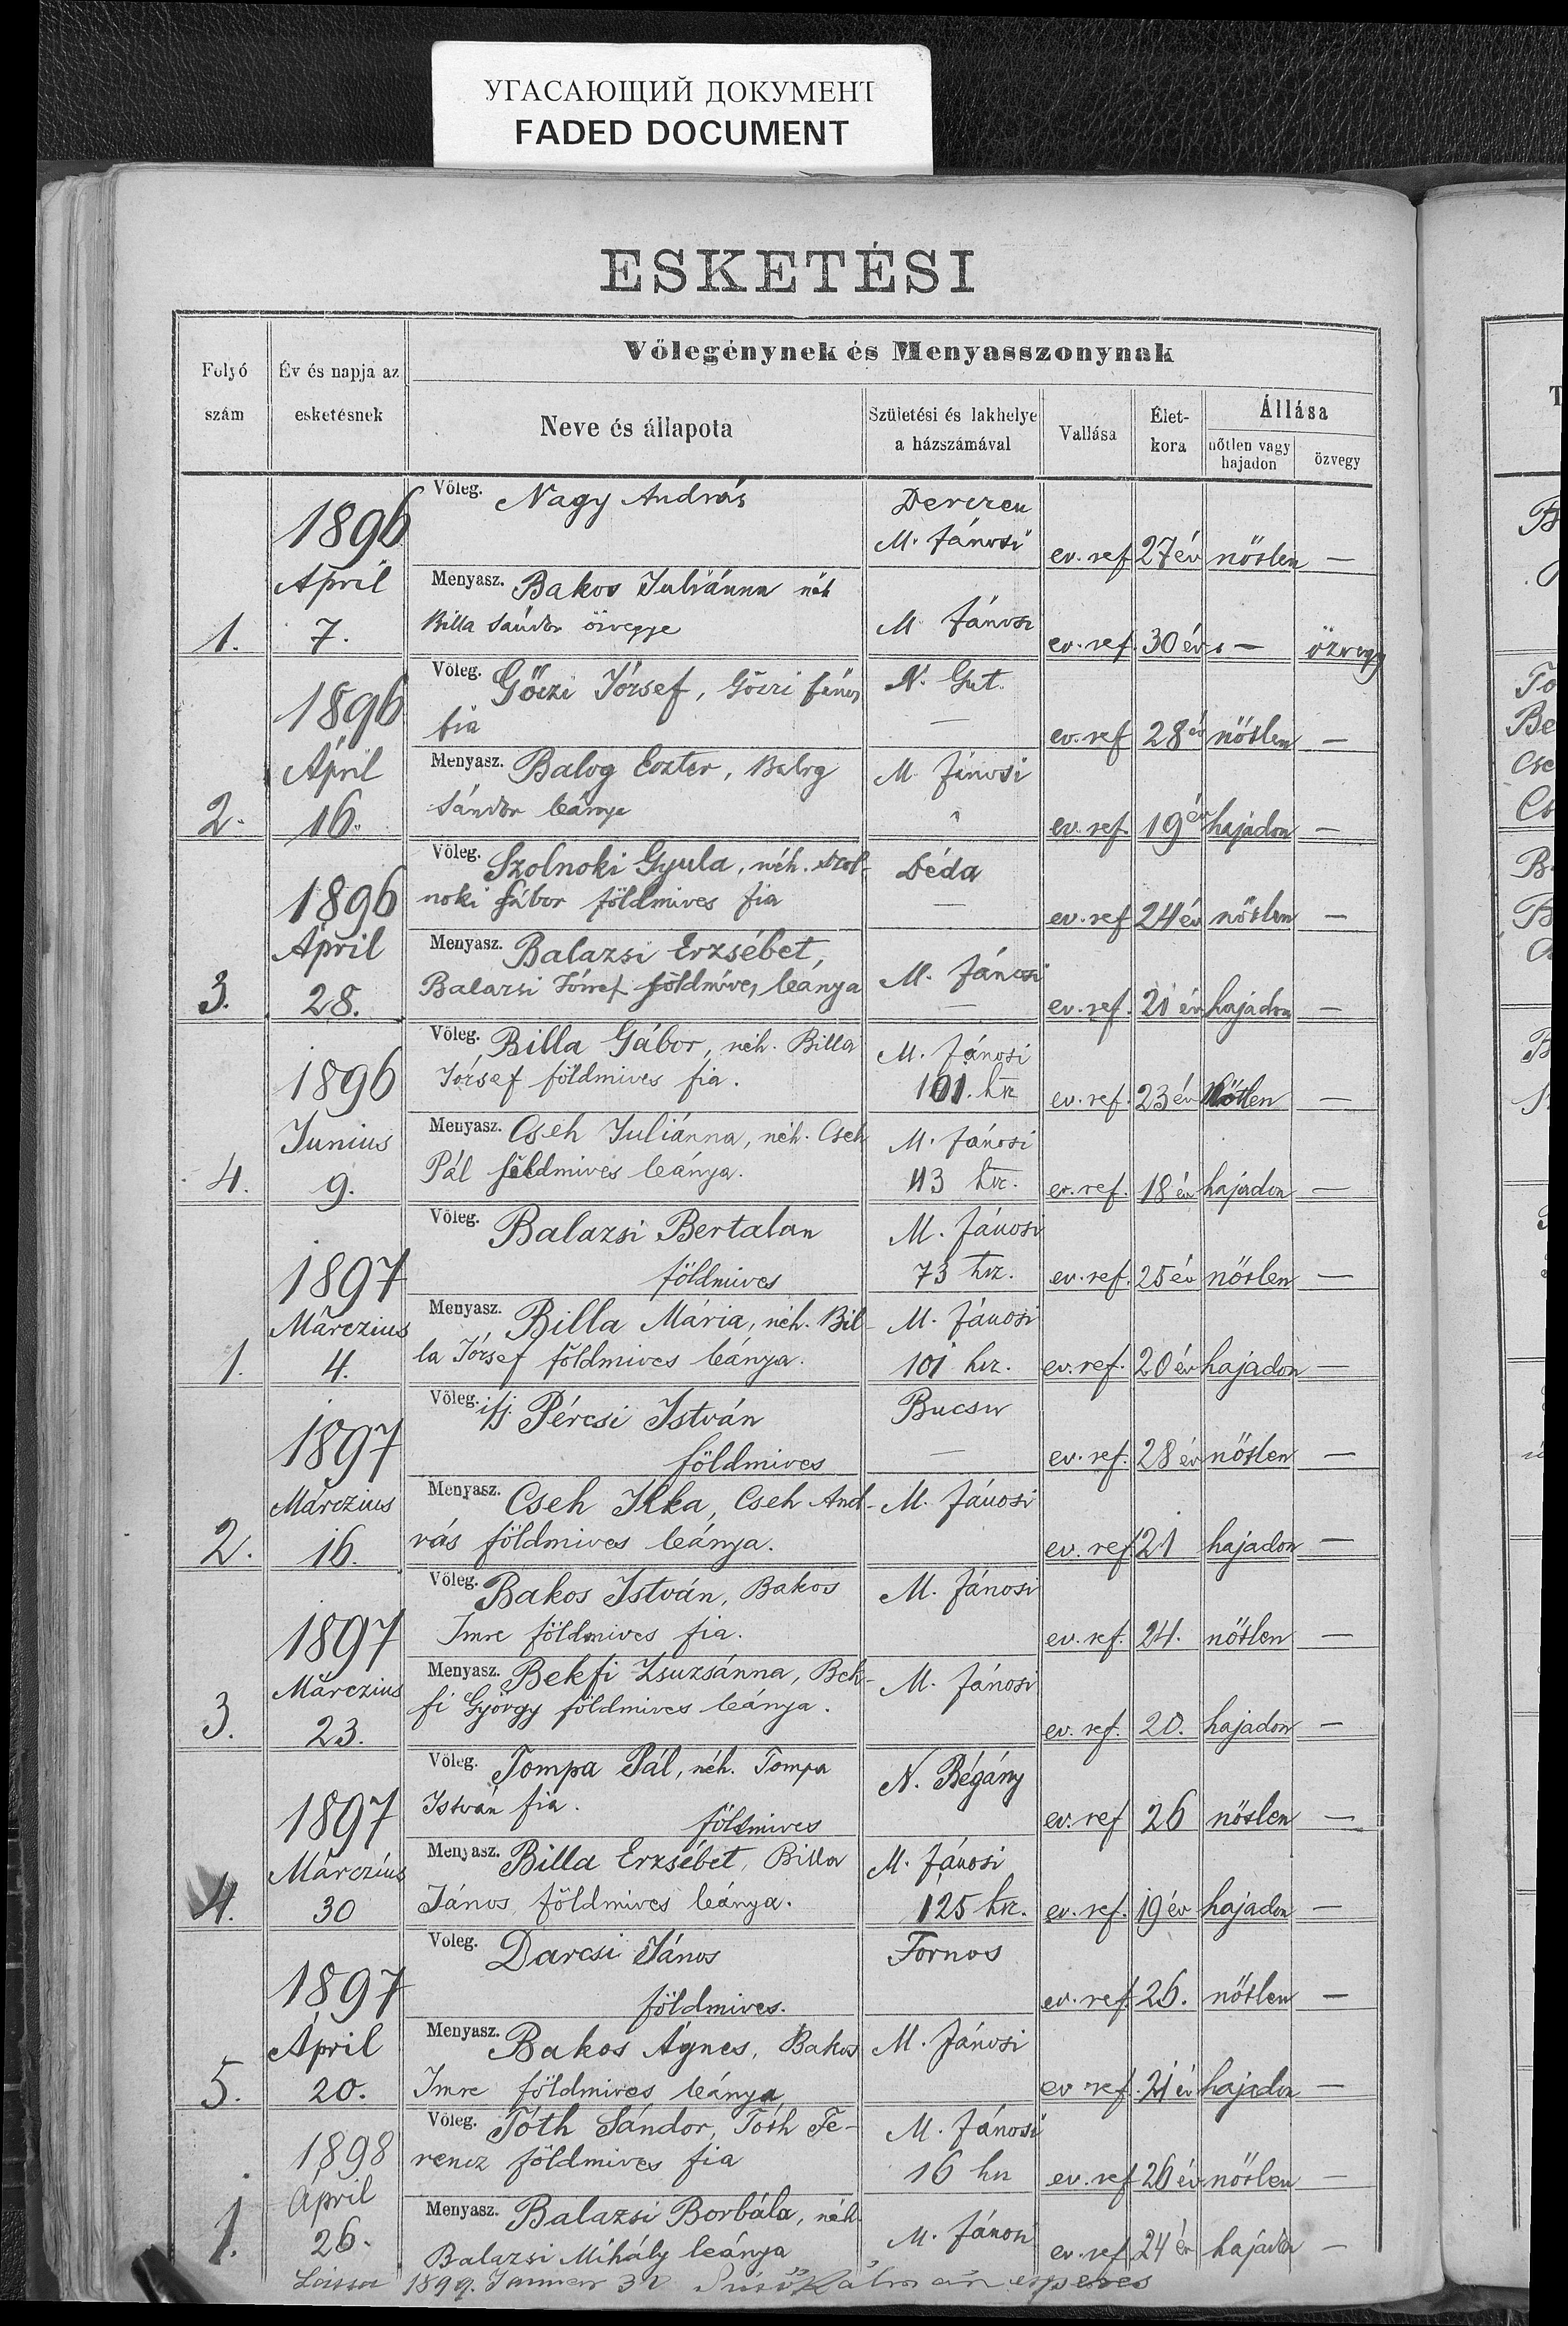 УГАСАЮЩИЙ ДОКУМЕНТ
FADED DOCUMENT
ESKETÉSI
Folyó szám
Év és napja az esketésnek
Vőlegénynek és Menyasszonynak
Neve és állapota
Születési és lakhelye a házszámával
Vallása
Élet-kora
Állása
nőtlen vagy hajadon
özvegy
1.
1896 April 7.
Vőleg. Nagy András
Derczen M. Jánosi
ev. ref. 27 év nőtlen —
Menyasz. Bakos Juliánna néh
Billa Sándor özvegye
M. Jánosi
ev. ref. 30 év — özvegy
2.
1896 April 16.
Vőleg. Gőczi József, Gőczi János
fia
N. Gut. —
ev. ref 28 év nőtlen —
Menyasz. Balog Eszter, Balog
Sándor leánya
M. Jánosi
ev. ref. 19 év hajadon —
3.
1896 April 28.
Vőleg. Szolnoki Gyula, néh. Szol-
noki Gábor földmives fia
Déda —
ev. ref 24 év nőtlen —
Menyasz. Balazsi Erzsébet,
Balazsi József földmives leánya
M. Jánosi —
ev. ref. 21 év hajadon —
4.
1896 Junius 9.
Vőleg. Billa Gábor, néh. Billa
József földmives fia.
M. Jánosi 101. hsz
ev. ref. 23 év Nőtlen —
Menyasz. Cseh Juliánna, néh. Cseh
Pál földmives leánya.
M. Jánosi 113 hsz.
ev. ref. 18 év hajadon —
1.
1897 Márczius 4.
Vőleg. Balazsi Bertalan
földmives
M. Jánosi 73 hsz.
ev. ref. 25 év nőtlen —
Menyasz. Billa Mária, néh. Bil-
la József földmives leánya.
M. Jánosi 101 hsz.
ev. ref. 20 év hajadon —
2.
1897 Márczius 16.
Vőleg. ifj. Pércsi István
földmives
Bucsu —
ev. ref. 28 év nőtlen —
Menyasz. Cseh Ilka, Cseh And-
rás földmives leánya.
M. Jánosi
ev. ref 21 hajadon —
3.
1897 Márczius 23.
Vőleg. Bakos István, Bakos
Imre földmives fia.
M. Jánosi
ev. ref. 24. nőtlen —
Menyasz. Bekfi Zsuzsánna, Bek-
fi György földmives leánya.
M. Jánosi
ev. ref. 20. hajadon —
4.
1897 Márczius 30
Vőleg. Tompa Pál, néh. Tompa
István fia. földmives
N. Bégány
ev. ref 26 nőtlen —
Menyasz. Billa Erzsébet, Billa
János földmives leánya.
M. Jánosi 125 hsz.
ev. ref. 19 év hajadon —
5.
1897 April 20.
Vőleg. Darcsi János
földmives.
Fornos
ev. ref. 26. nőtlen —
Menyasz. Bakos Ágnes, Bakos
Imre földmives leánya
M. Jánosi
ev ref. 21 év hajadon —
1.
1898 April 26.
Vőleg. Tóth Sándor, Tóth Fe-
rencz földmives fia
M. Jánosi 16 hsz
ev. ref 26 év nőtlen —
Menyasz. Balazsi Borbála, néh.
Balazsi Mihály leánya
M. Jánosi
ev. ref. 24 év hajadon —
1899. Januar Kálmán esperes